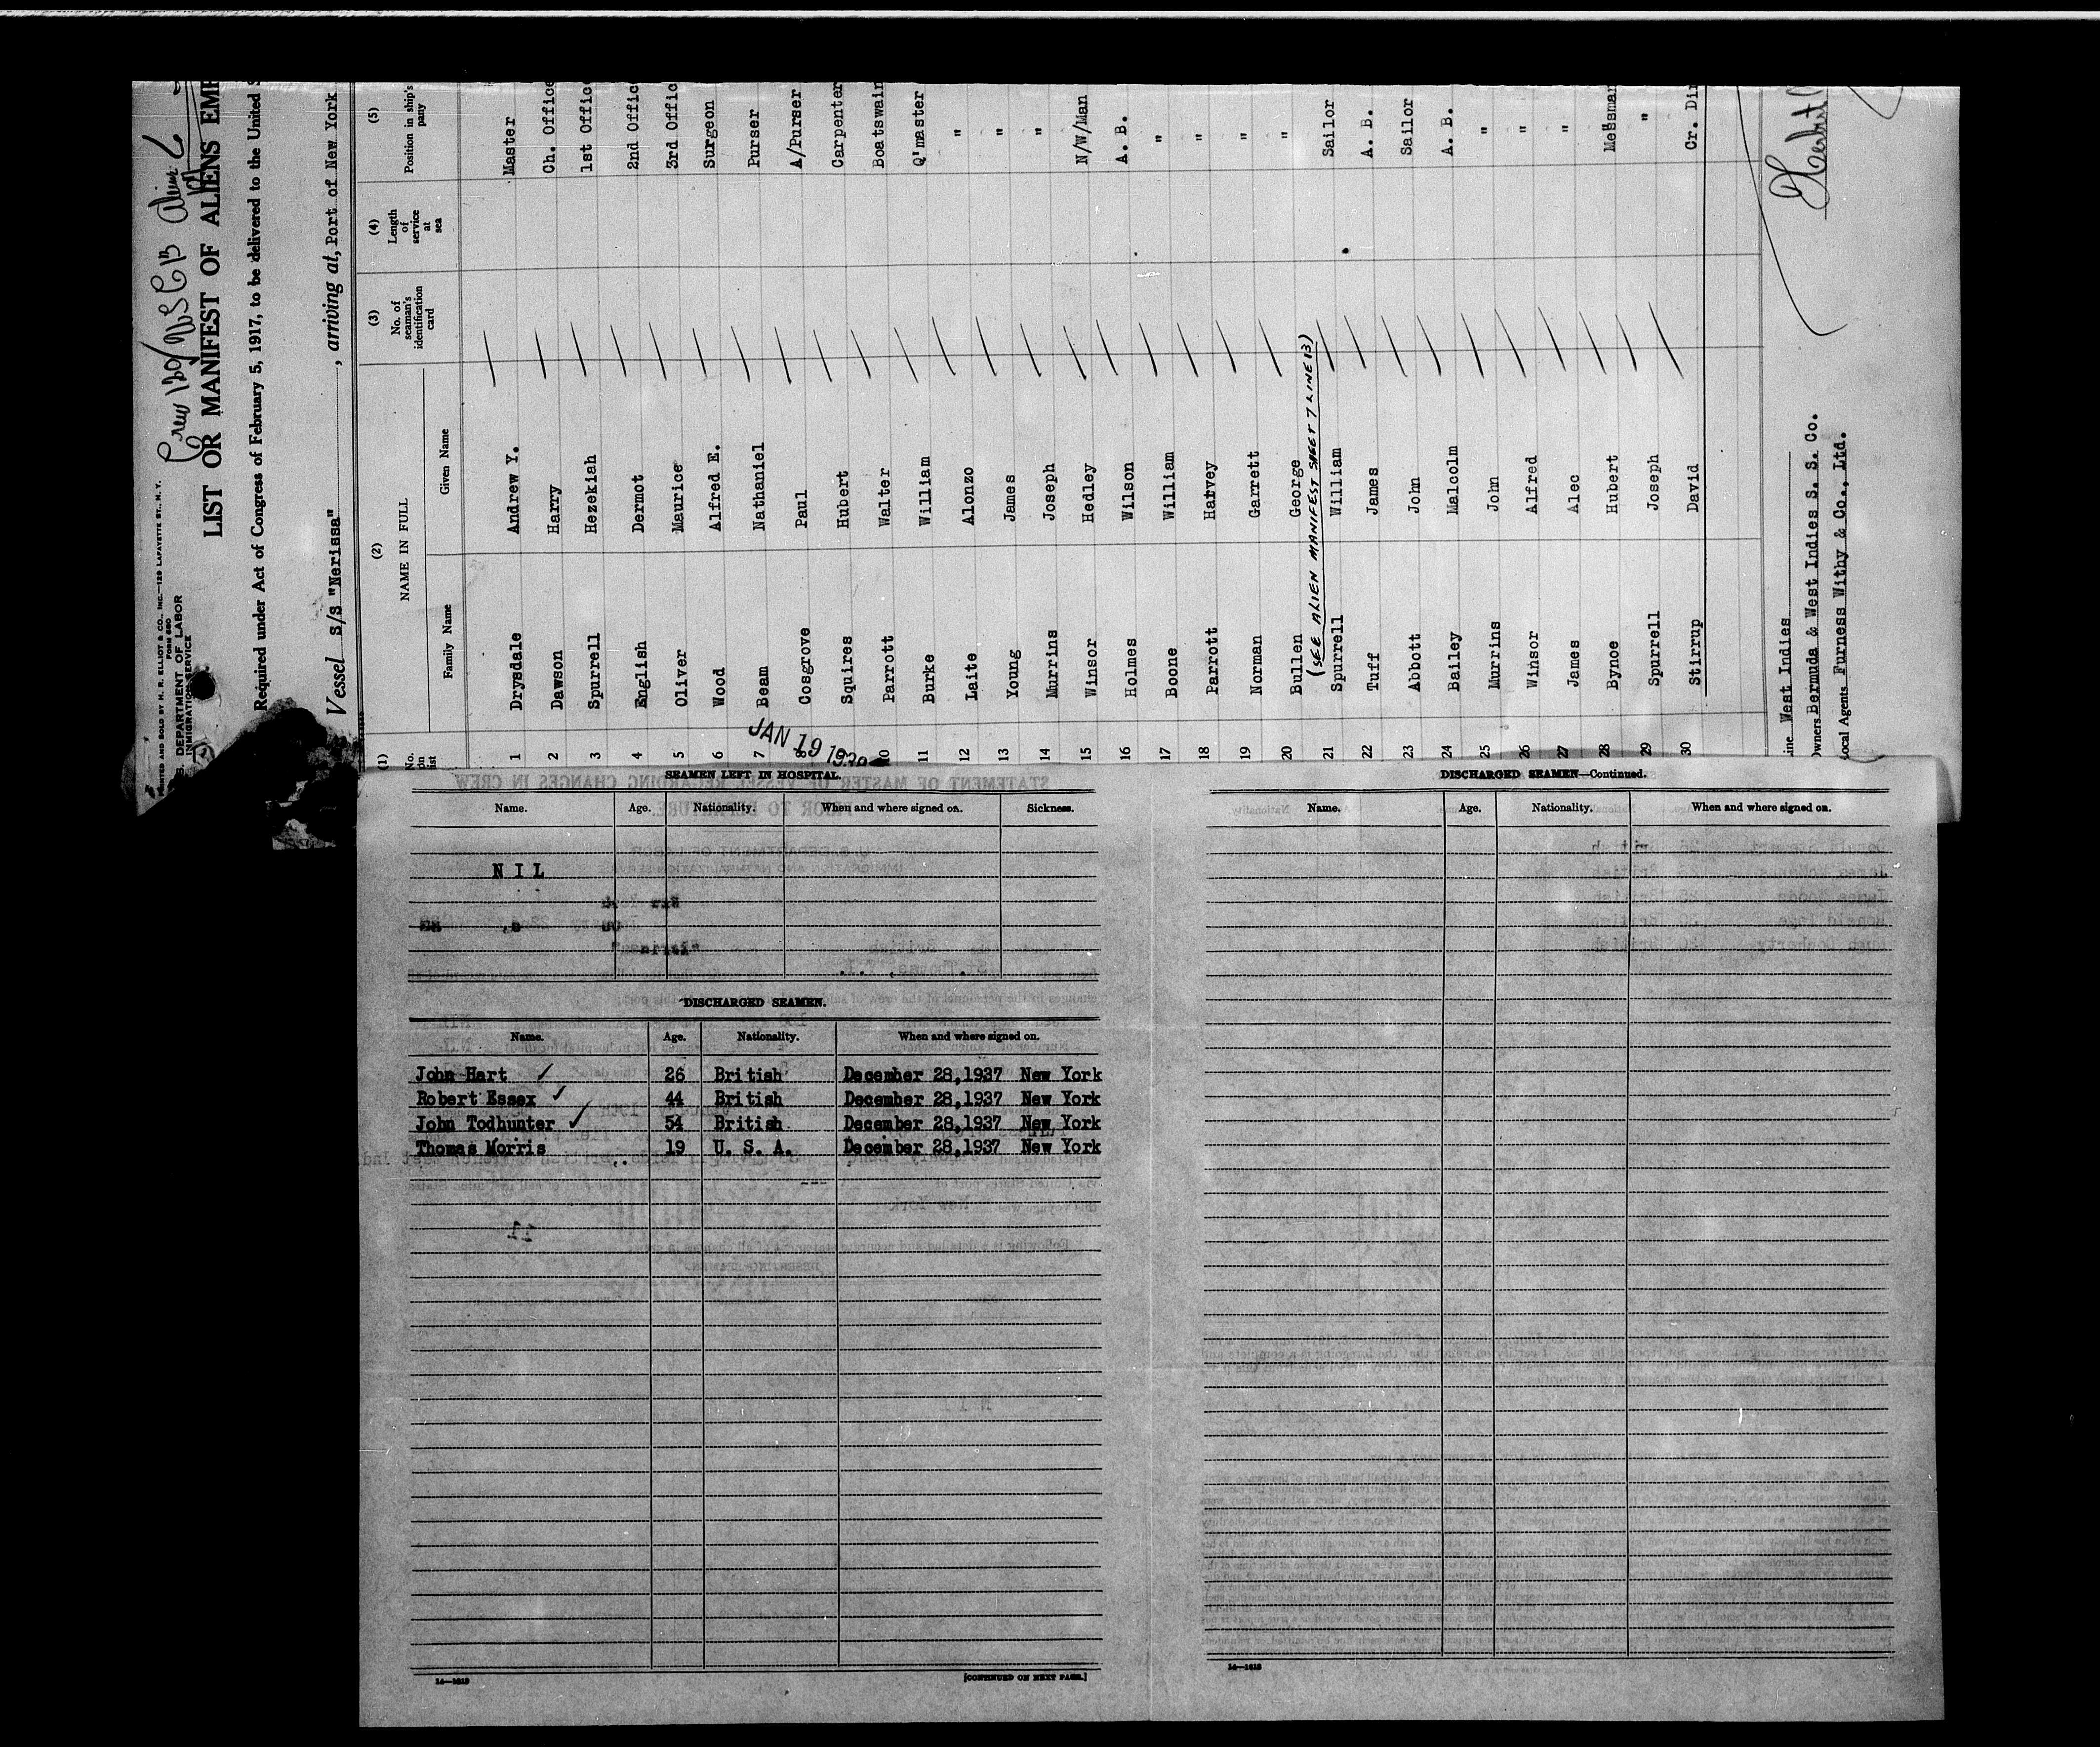 Crew 120/
PRINTED AND SOLD BY M. R. ELLIOT & CO., INC.—129 LAFAYETTE ST., N. Y.
FORM 680
DEPARTMENT OF LABOR
IMMIGRATION SERVICE
LIST OR MANIFEST OF ALIENS EMP
Required under Act of Congress of February 5, 1917, to be delivered to the United S
Vessel S/S "Nerissa", arriving at, Port of New York
(1) No. on list (2) NAME IN FULL Family Name Given Name (3) No. of seaman's identification card (4) Length of service at sea (5) Position in ship's pany
1 Drysdale Andrew Y. Master
2 Dawson Harry Ch. Office
3 Spurrell Hezekiah 1st Offic
4 English Dermot 2nd Offic
5 Oliver Maurice 3rd Offic
6 Wood Alfred E. Surgeon
7 Beam Nathaniel Purser
8 Cosgrove Paul A/Purser
9 Squires Hubert Carpenter
10 Parrott Walter Boatswain
11 Burke William Q'master
12 Laite Alonzo "
13 Young James "
14 Murrins Joseph "
15 Winsor Hedley N/W/Man
16 Holmes Wilson A. B.
17 Boone William "
18 Parrott Harvey "
19 Norman Garrett "
20 Bullen George "
(SEE ALIEN MANIFEST SHEET 7 LINE 13)
21 Spurrell William Sailor
22 Tuff James A. B.
23 Abbott John Sailor
24 Bailey Malcolm A. B.
25 Murrins John "
26 Winsor Alfred "
27 James Alec "
28 Bynoe Hubert Messman
29 Spurrell Joseph "
30 Stirrup David Cr. Dir
JAN 19 193
ine West Indies
Owners Bermuda & West Indies S. S. Co.
ocal Agents Furness Withy & Co., Ltd.
SEAMEN LEFT IN HOSPITAL.
Name. Age. Nationality. When and where signed on. Sickness.
N I L
DISCHARGED SEAMEN.
Name. Age. Nationality. When and where signed on.
John Hart 26 British December 28,1937 New York
Robert Essex 44 British December 28,1937 New York
John Todhunter 54 British December 28,1937 New York
Thomas Morris 19 U. S. A. December 28,1937 New York
14—1613
[CONTINUED ON NEXT PAGE.]
DISCHARGED SEAMEN—Continued.
Name. Age. Nationality. When and where signed on.
14—1613